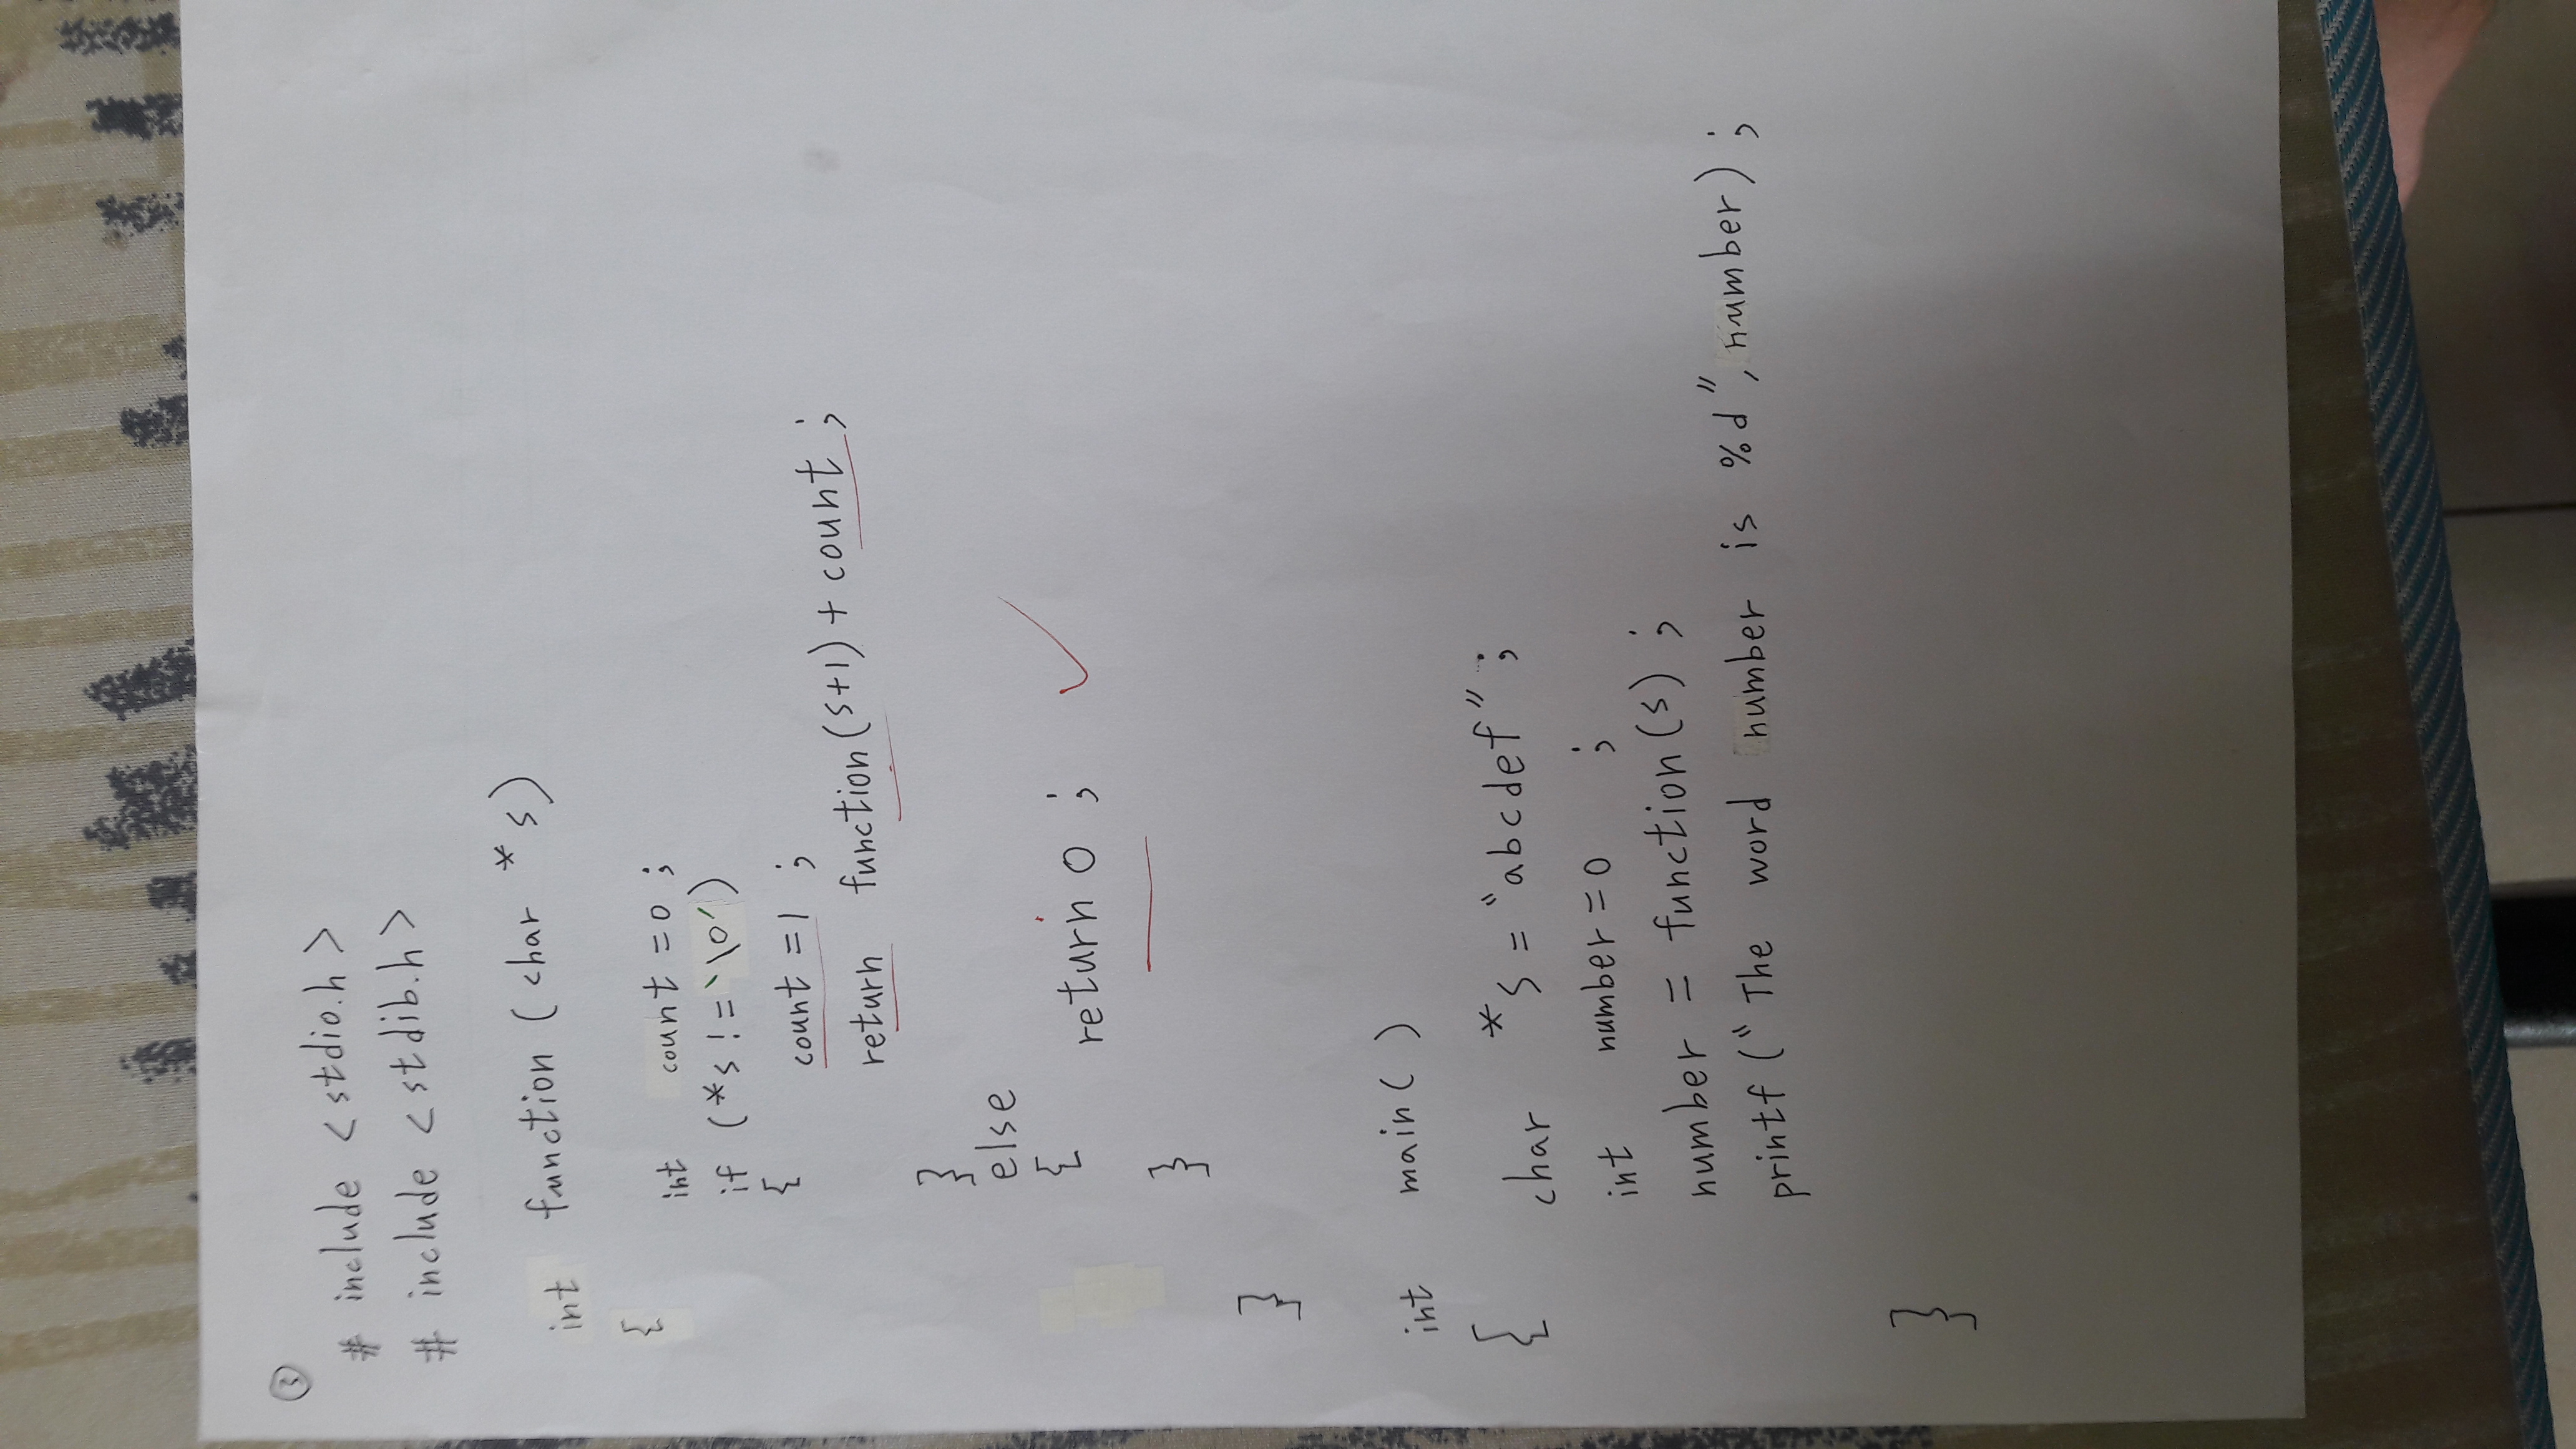 ③
# include <stdio.h>
# include <stdib.h>
int function (char *s)
{
int count =0 ;
if (*s != '\0')
{ count =1 ;
return function(s+1) + count ;
}
else
{ return 0 ;
}
}
int main( )
{ char *s = "abcdef" ;
int number = 0 ;
number = function(s) ;
printf ("The word number is %d", number) ;
}